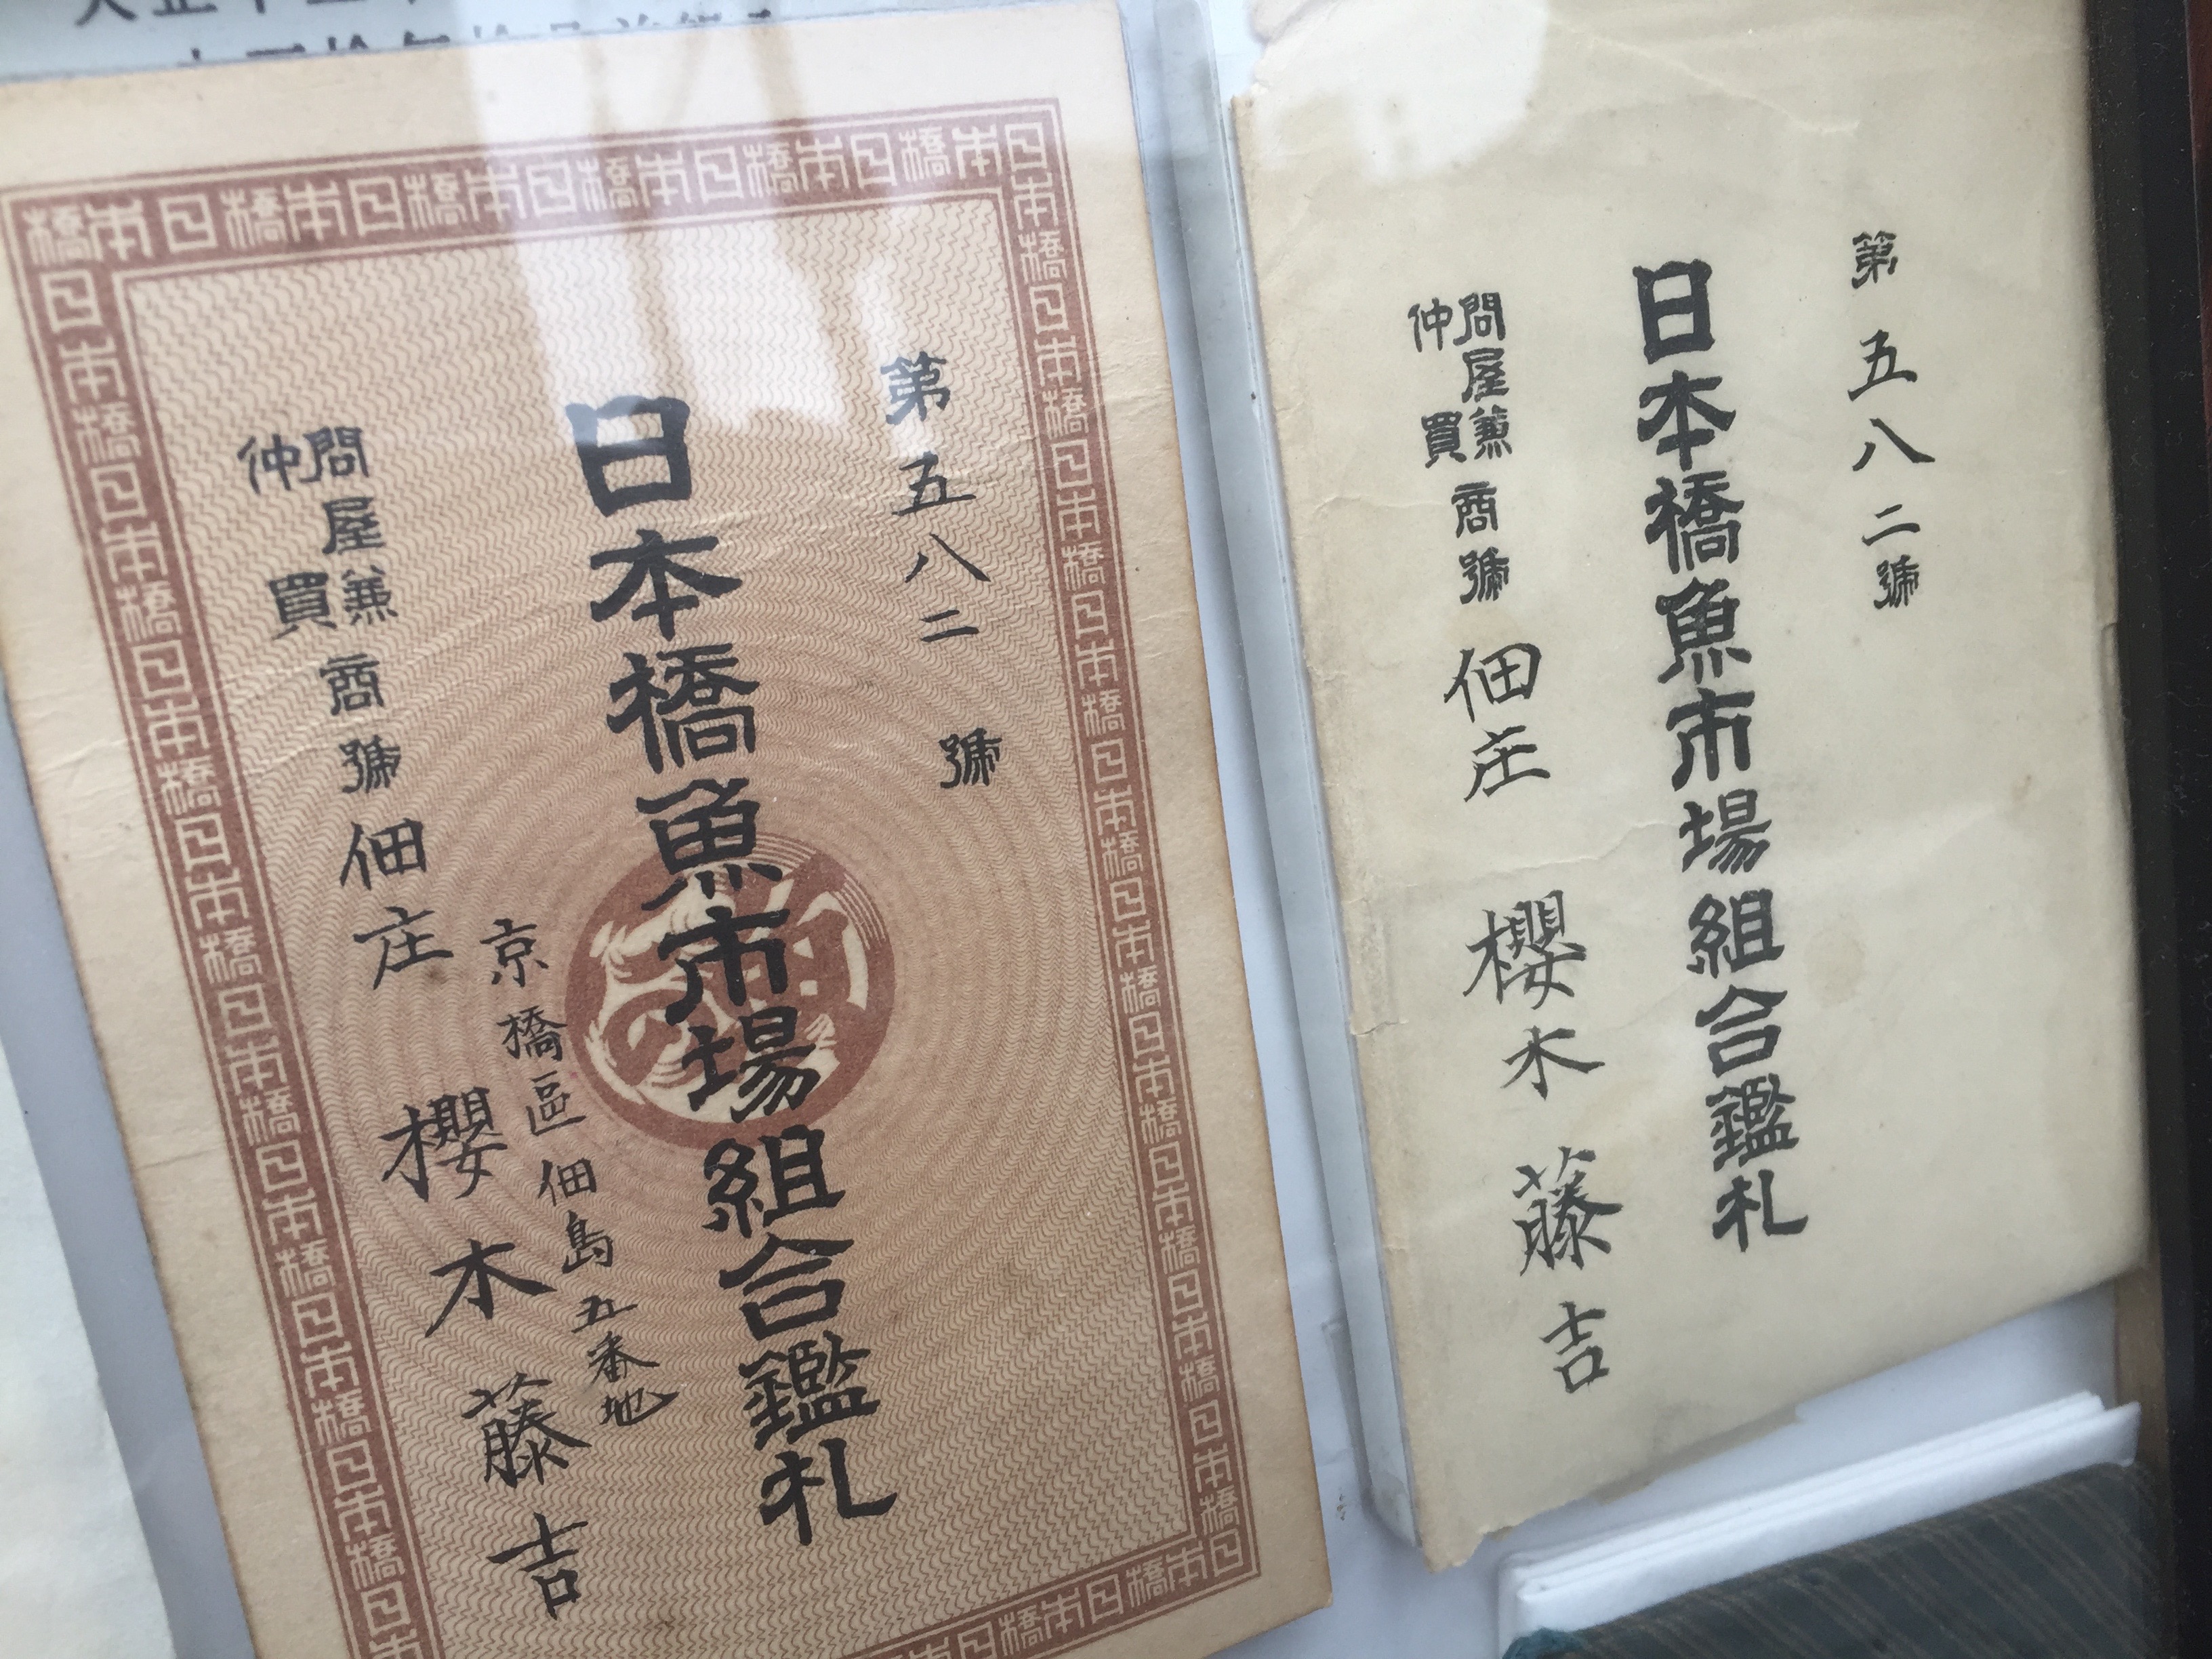 第五八二號
日本橋魚市場組合鑑札
京橋區佃島五番地
問屋兼
仲買
商號 佃庄 櫻木藤吉
第五八二號
日本橋魚市場組合鑑札
問屋兼
仲買
商號 佃庄 櫻木藤吉